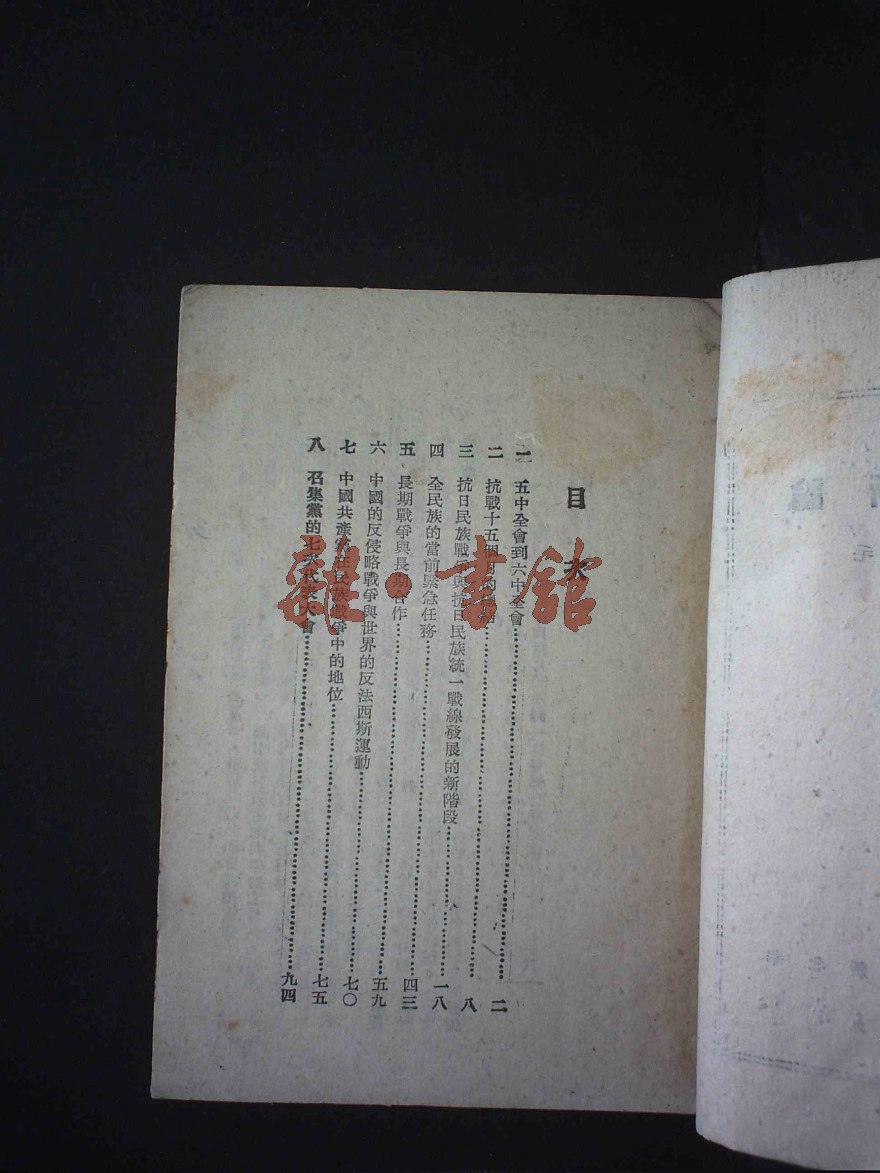 論
毛
目次
一 五中全會到六中全會……二
二 抗戰十五個月的總結……八
三 抗日民族戰爭與抗日民族統一戰線發展的新階段……一八
四 全民族的當前緊急任務……四三
五 長期戰爭與長期合作……五九
六 中國的反侵略戰爭與世界的反法西斯運動……七〇
七 中國共產黨在民族戰爭中的地位……七五
八 召集黨的七次代表大會……九四
雜·書館